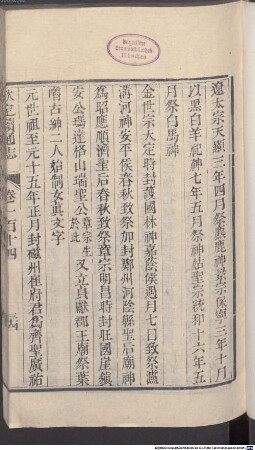 遼太宗天顯三年四月祭麃鹿神景宗保寧三年十月
以黑白羊祀神七年五月祭神姑聖宗統和十六年五
月祭白馬神
金世宗大定時封護國林神嘉蔭侯遇月七日致祭瀘
溝河神安平侯春秋致祭加封鄭州河陰縣聖后廟神
為昭應順濟聖后春秋致祭章宗明昌時封旺國崖鎮
安公瑪達格山瑞聖公章宗生於此又立貞獻郡王廟祭葉
嚕古紳二人始制女真文字
元世祖至元十五年正月封磁州崔府君為齊聖廣祐
欽定續通志
卷一百十四